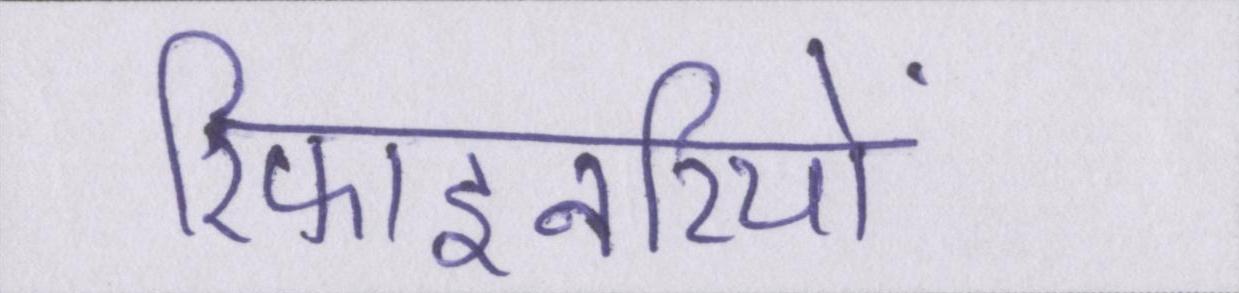 रिफाइनरियों